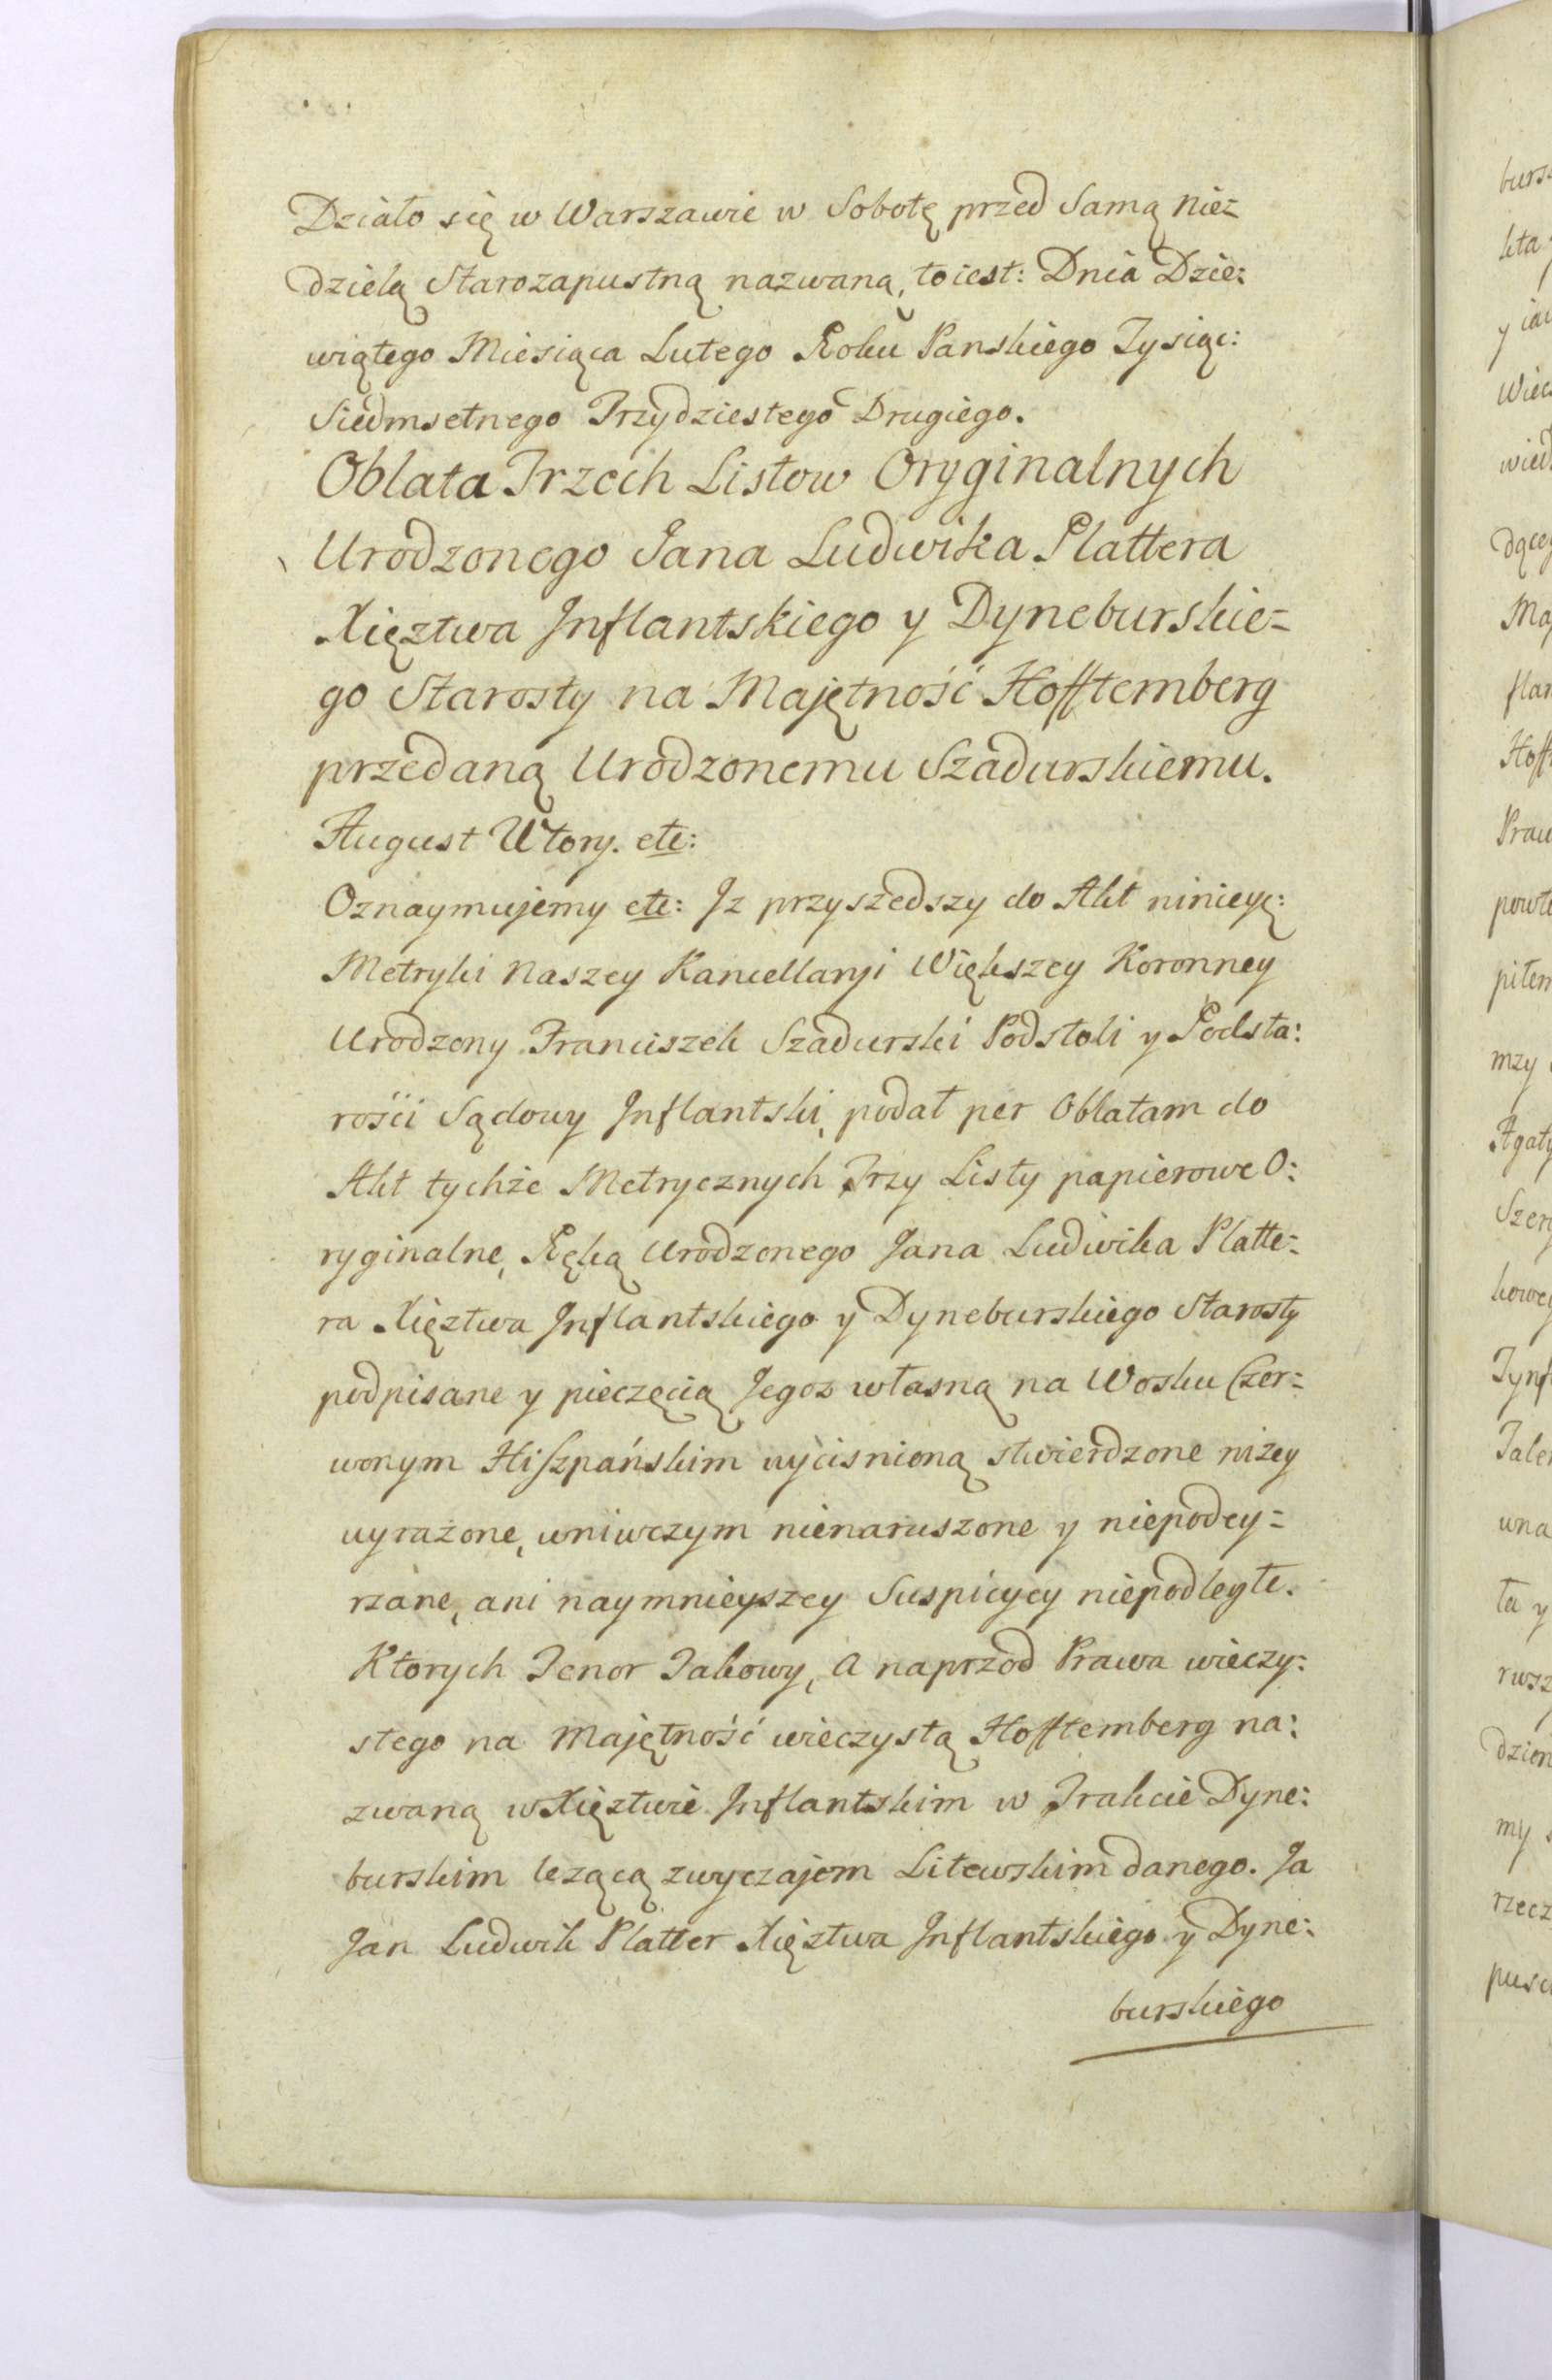 Działo się w Warszawie w Sobotę przed Samą Nie=
dzielą Starozapustną nazwaną, to iest: Dnia Dzie:
wiątego Miesiąca Lutego Roku Panskiego Tysiąc:
Siedmsetnego Trzydziestego Drugiego.
Oblata Trzech Listow Oryginalnych
Urodzonego Jana Ludwika Plattera
Xięztwa Inflantskiego y Dyneburskie=
go Starosty na Majętność Hofftemberg
przedaną Urodzonemu Szadurskiemu.
August Wtory. etc:
Oznaymujemy etc: Iz przyszedszy do Akt ninieyς:
Metryki Naszey Kancellaryi Większey Koronney
Urodzony Franciszek Szadurski Podstoli y Podsta:
rości Sądowy Inflantski, podał per Oblatam do
Akt tychże Metrycznych Trzy Listy papierowe O:
ryginalne, Ręką Urodzonego Jana Ludwika Platte=
ra Xięztwa Inflantskiego y Dyneburskiego Starosty
podpisane y pieczęcią Jegoz własną na Wosku Czer=
wonym Hiszpańskim wyciśnioną stwierdzone niżey
wyrażone, wniwczym nienaruszone y niepodey=
rzane, ani naymnieyszey Suspicyey niepodległe.
Ktorych Tenor Takowy, a naprzod Prawa wieczy:
stego na Majętność wieczystą Hofftemberg na:
zwaną w Xięztwie Inflantskim w Trakcie Dyne:
burskim leżącą zwyczajem Litewskim danego. Ja
Jan Ludwik Platter Xięztwa Inflantskiego y Dyne:
burskiego